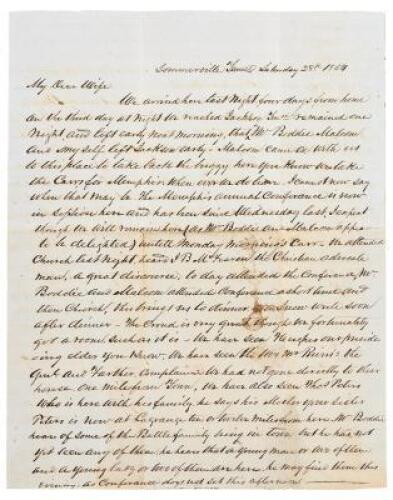 Sommerville Tenn. Saturday 28th 1854
My Dear Wife
We arrived here last Night four days from home
on the third day at Night we reached Jackson Tenn. remained one
Night and left early next morning, that is Mr Boddie Malone
and my self left Jackson early. Malone came on with us
to this place to take back the buggy here you know we take
the Carrs for Memphis When
when that may be The Memphis annual Conference is now
in Session here and has been since Wednesday last. I expect
though we will remain here (as Mr Boddie and Malone appe
to be delighted) until Monday mornings Carr. We attended
Church last night, heard J B McFerrin the Christian advocate
man, a great discourse, to day attended the Conference, Mr
Boddie and Malone attended Conference a short time and
then Church, this brings us to dinner, now write soon
after dinner - The Croud is very great though we fortunately
got a room, such as it is - We have seen presi
ding elder you Know. We have seen the two Mr
Gout and Farther Complains We had not gone directly to their
house One mile from Town, We have also seen Thos Peters
Who is here with his family he says his Mother your Sister
Peters is now at Lagrange ten or twelve miles from here Mr Boddie
hears of some of the Battle family being in Town but he has not
yet seen any of them he hears that a young man or two of them
and a young lady or two of them are here he may find them this
evening as Conference does not set this afternoon